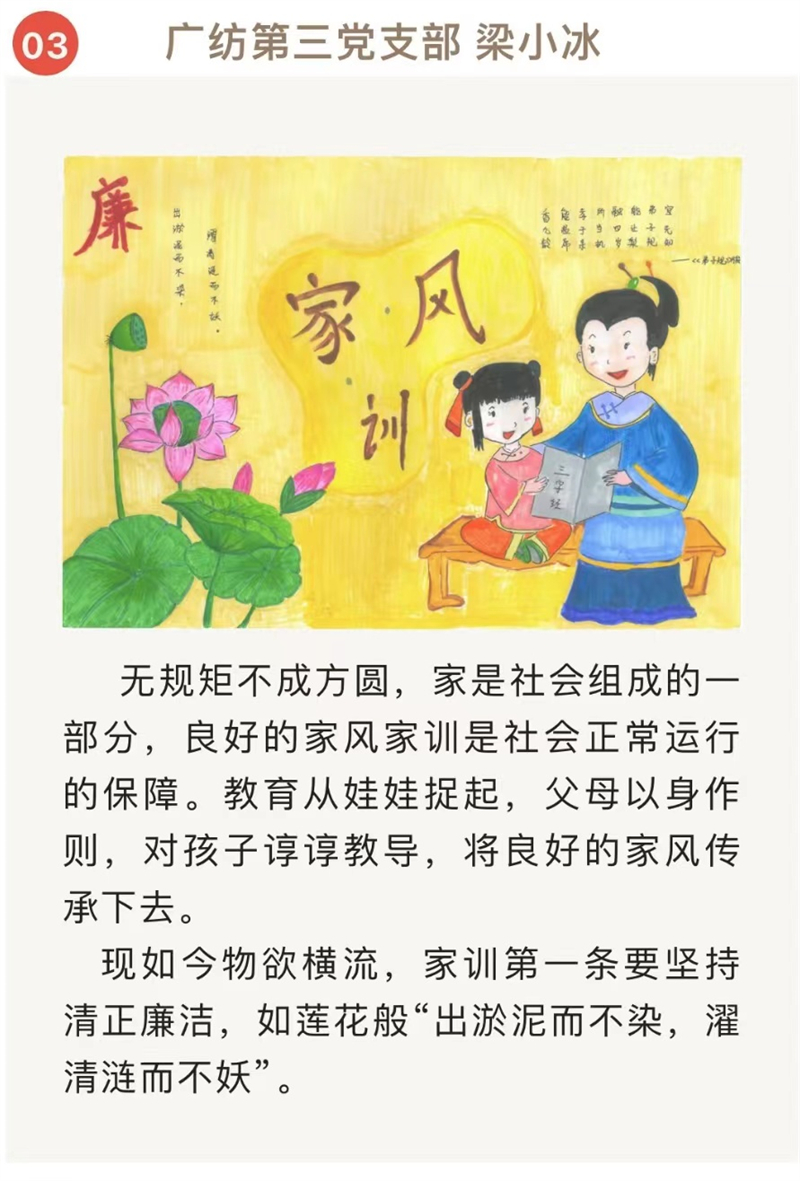 03
广纺第三党支部 梁小冰
廉
出淤泥而不染，
濯清涟而不妖。
家·风
·训
宜先知
弟子规
能让梨
融四岁
所当执
孝于亲
能温席
香九龄
三字经
无规矩不成方圆，家是社会组成的一
部分，良好的家风家训是社会正常运行
的保障。教育从娃娃捉起，父母以身作
则，对孩子谆谆教导，将良好的家风传
承下去。
现如今物欲横流，家训第一条要坚持
清正廉洁，如莲花般“出淤泥而不染，濯
清涟而不妖”。